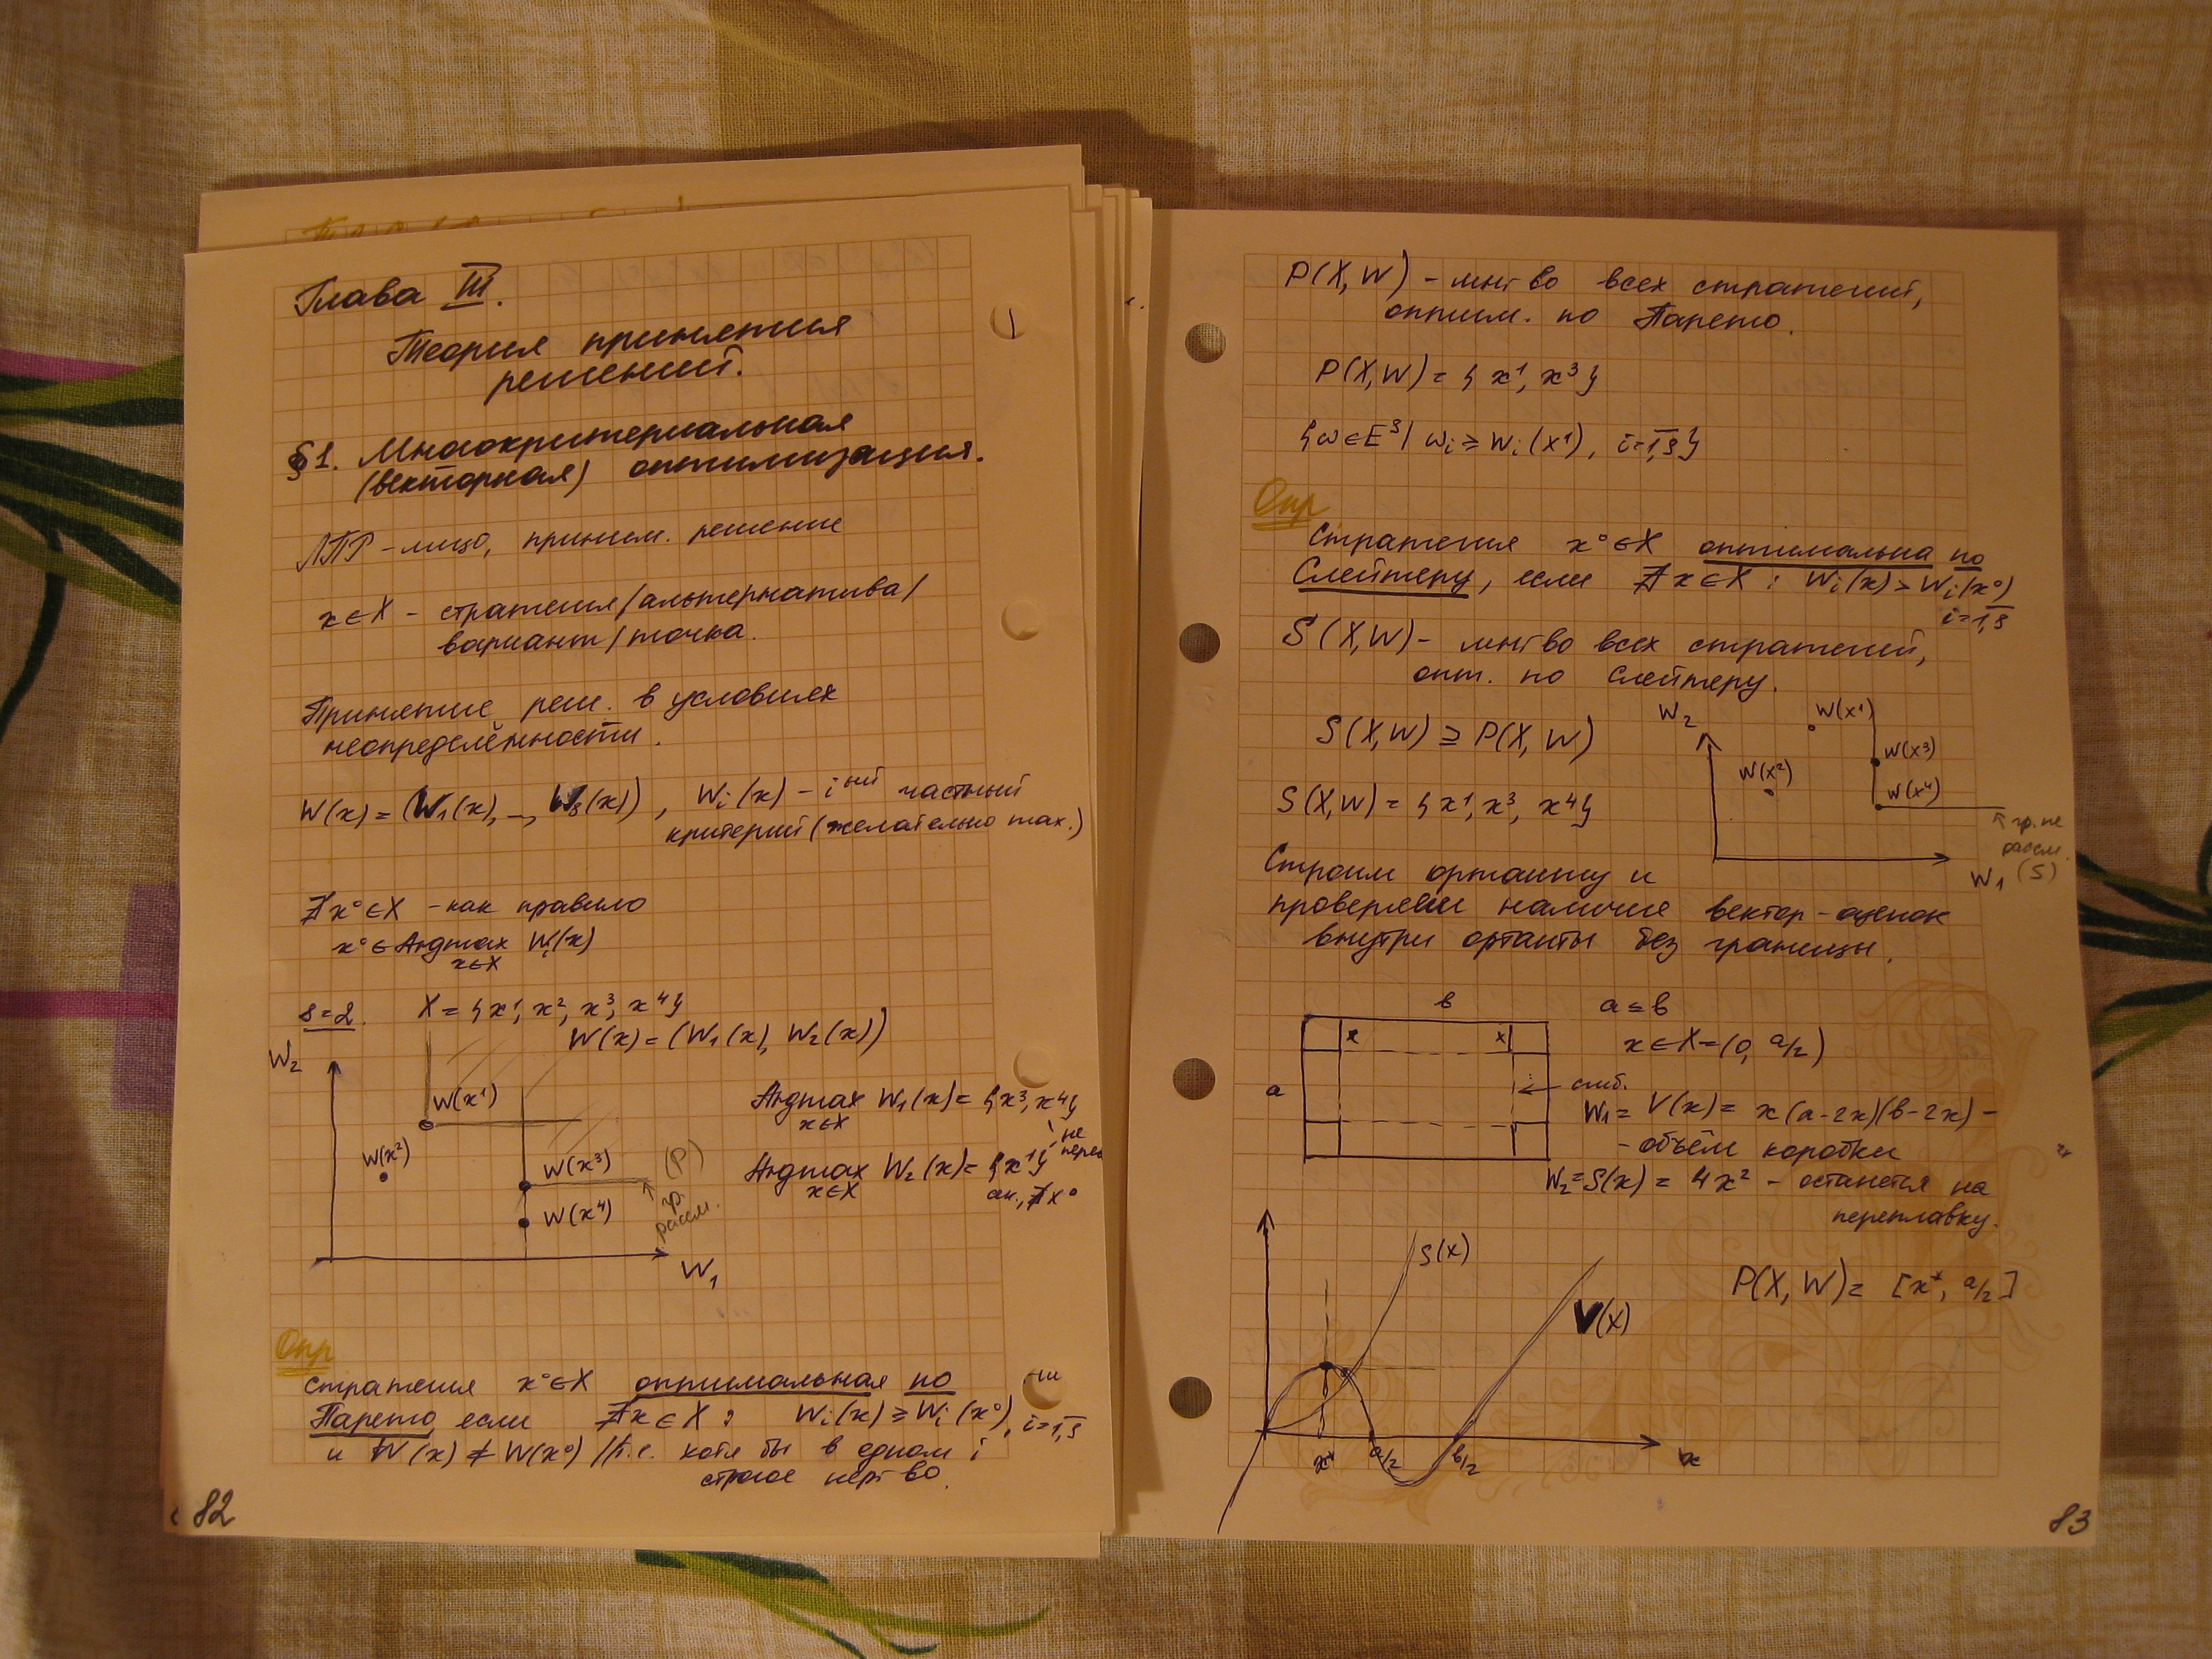 Глава III.
Теория принятия
решений.
§1. Многокритериальная
(векторная) оптимизация.
ЛПР – лицо, приним. решение
x∈X – стратегия/альтернатива/
вариант/точка.
Принятие реш. в условиях
неопределённости.
W(x) = (W₁(x), ..., Wₛ(x)), Wᵢ(x) – iый частный
критерий (желательно max.)
∄x⁰∈X – как правило
x⁰∈Argmax Wᵢ(x)
x∈X
s=2. X = {x¹, x², x³, x⁴}
W(x) = (W₁(x), W₂(x))
W₂
W(x¹)
W(x²)
W(x³)
W(x⁴)
W₁
(P)
гр.
рассм.
Argmax W₁(x) = {x³, x⁴}
x∈X
не
Argmax W₂(x) = {x¹}
x∈X
∄x⁰
Опр
Стратегия x⁰∈X оптимальная по
Парето, если ∄x∈X : Wᵢ(x) ≥ Wᵢ(x⁰), i=1,s
и W(x) ≠ W(x⁰) //т.е. хотя бы в одном i
строгое нер-во.
82
P(X,W) – мн-во всех стратегий,
оптим. по Парето.
P(X,W) = {x¹, x³}
{w∈Eˢ | wᵢ ≥ Wᵢ(x¹), i=1,s}
Опр
Стратегия x⁰∈X оптимальна по
Слейтеру, если ∄x∈X : Wᵢ(x) > Wᵢ(x⁰)
i=1,s
S(X,W) – мн-во всех стратегий,
опт. по Слейтеру.
S(X,W) ⊇ P(X,W)
S(X,W) = {x¹, x³, x⁴}
W₂
W(x¹)
W(x²)
W(x³)
W(x⁴)
гр. не
рассм.
W₁ (S)
Строим ортанту и
проверяем наличие вектор-оценок
внутри ортанты без границы.
b
a
x
x
a ≤ b
x∈X = (0, a/2)
сгиб.
W₁ = V(x) = x(a-2x)(b-2x) –
- объём коробки
W₂ = S(x) = 4x² – останется на
переплавку.
S(x)
V(x)
P(X,W) = [x*, a/2]
x*
a/2
b/2
x
83